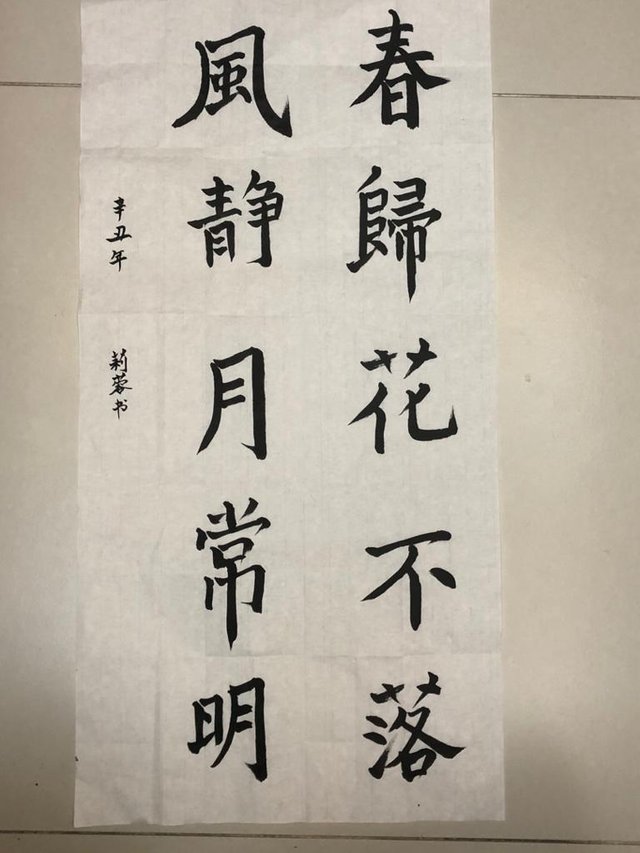 春歸花不落
風静月常明
辛丑年 莉蓉书